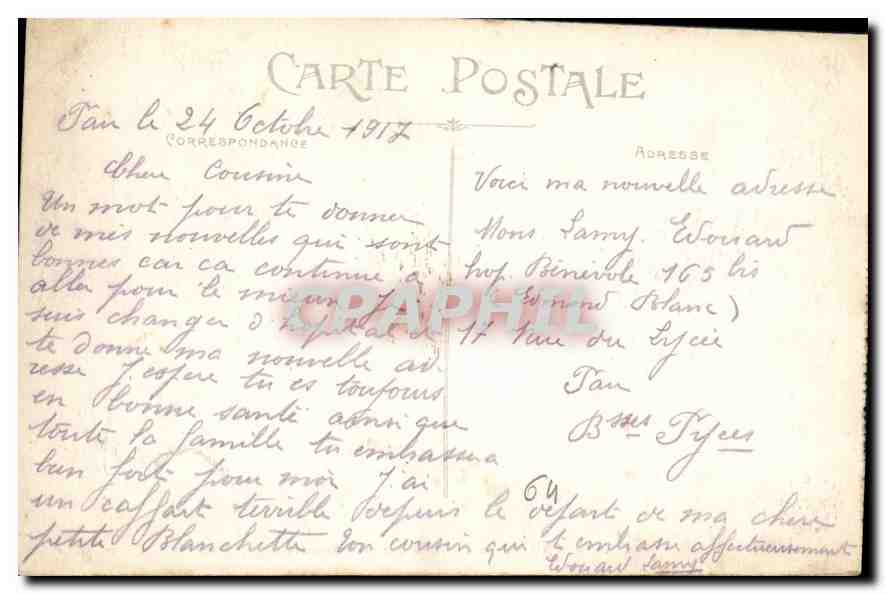 CARTE POSTALE
Pau le 24 Octobre 1917
CORRESPONDANCE
Chere Cousine
Un mot pour te donner
de mes nouvelles qui sont
bonnes car ca continue a
aller pour le mieux Je
suis changer d hopital et
te donne ma nouvelle ad.
resse J'espere tu es toujours
en bonne santé ainsi que
toute la famille tu embrassera
bien fort pour moi J'ai
un caffart terrible depuis le départ de ma chere
petite Blanchette Ton cousin qui t embrasse affectueusement
Edouard Lamy
ADRESSE
Voici ma nouvelle adresse
Mons Lamy. Edouard
hop. Bénévole 165 bis
(Edmond Blanc)
17 Rue du Lycée
Pau
Bsses Pyees
64
CPAPHIL